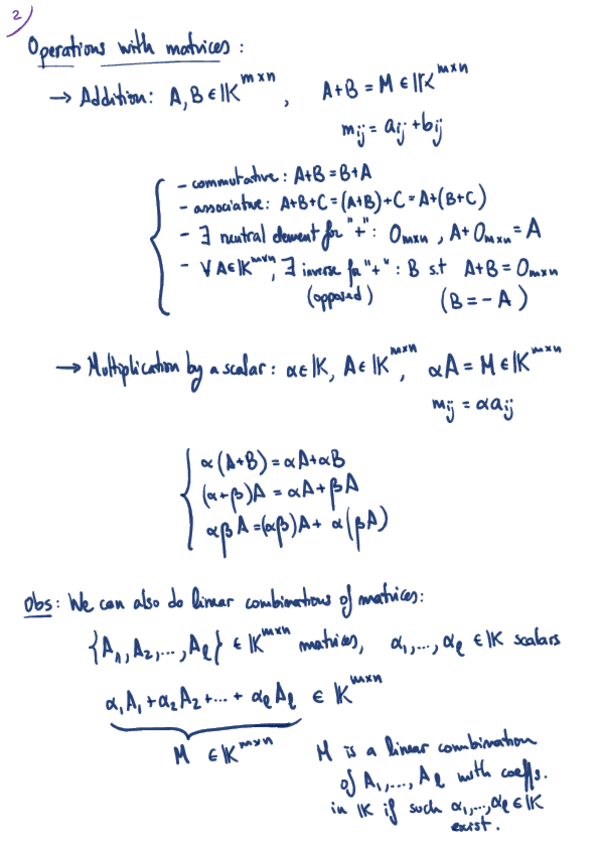 2
Operations with matrices :
→ Addition: A, B ∈ 𝕂^{m×n} , A+B = M ∈ 𝕂^{m×n}
m_{ij} = a_{ij} + b_{ij}
- commutative : A+B = B+A
- associative: A+B+C = (A+B)+C = A+(B+C)
- ∃ neutral element for "+" : O_{m×n} , A + O_{m×n} = A
- ∀ A∈𝕂^{m×n}, ∃ inverse for "+" : B s.t A+B = O_{m×n}
(opposed) (B = -A)
→ Multiplication by a scalar : α∈𝕂, A∈𝕂^{m×n}, αA = M ∈ 𝕂^{m×n}
m_{ij} = αa_{ij}
α(A+B) = αA+αB
(α+β)A = αA + βA
αβA = (αβ)A + α(βA)
Obs : We can also do linear combinations of matrices:
{A_1, A_2, ..., A_ℓ} ∈ 𝕂^{m×n} matrices, α_1, ..., α_ℓ ∈ 𝕂 scalars
α_1A_1 + α_2A_2 + ... + α_ℓA_ℓ ∈ 𝕂^{m×n}
M ∈ 𝕂^{m×n}
M is a linear combination
of A_1, ..., A_ℓ with coeffs.
in 𝕂 if such α_1, ..., α_ℓ ∈ 𝕂
exist.